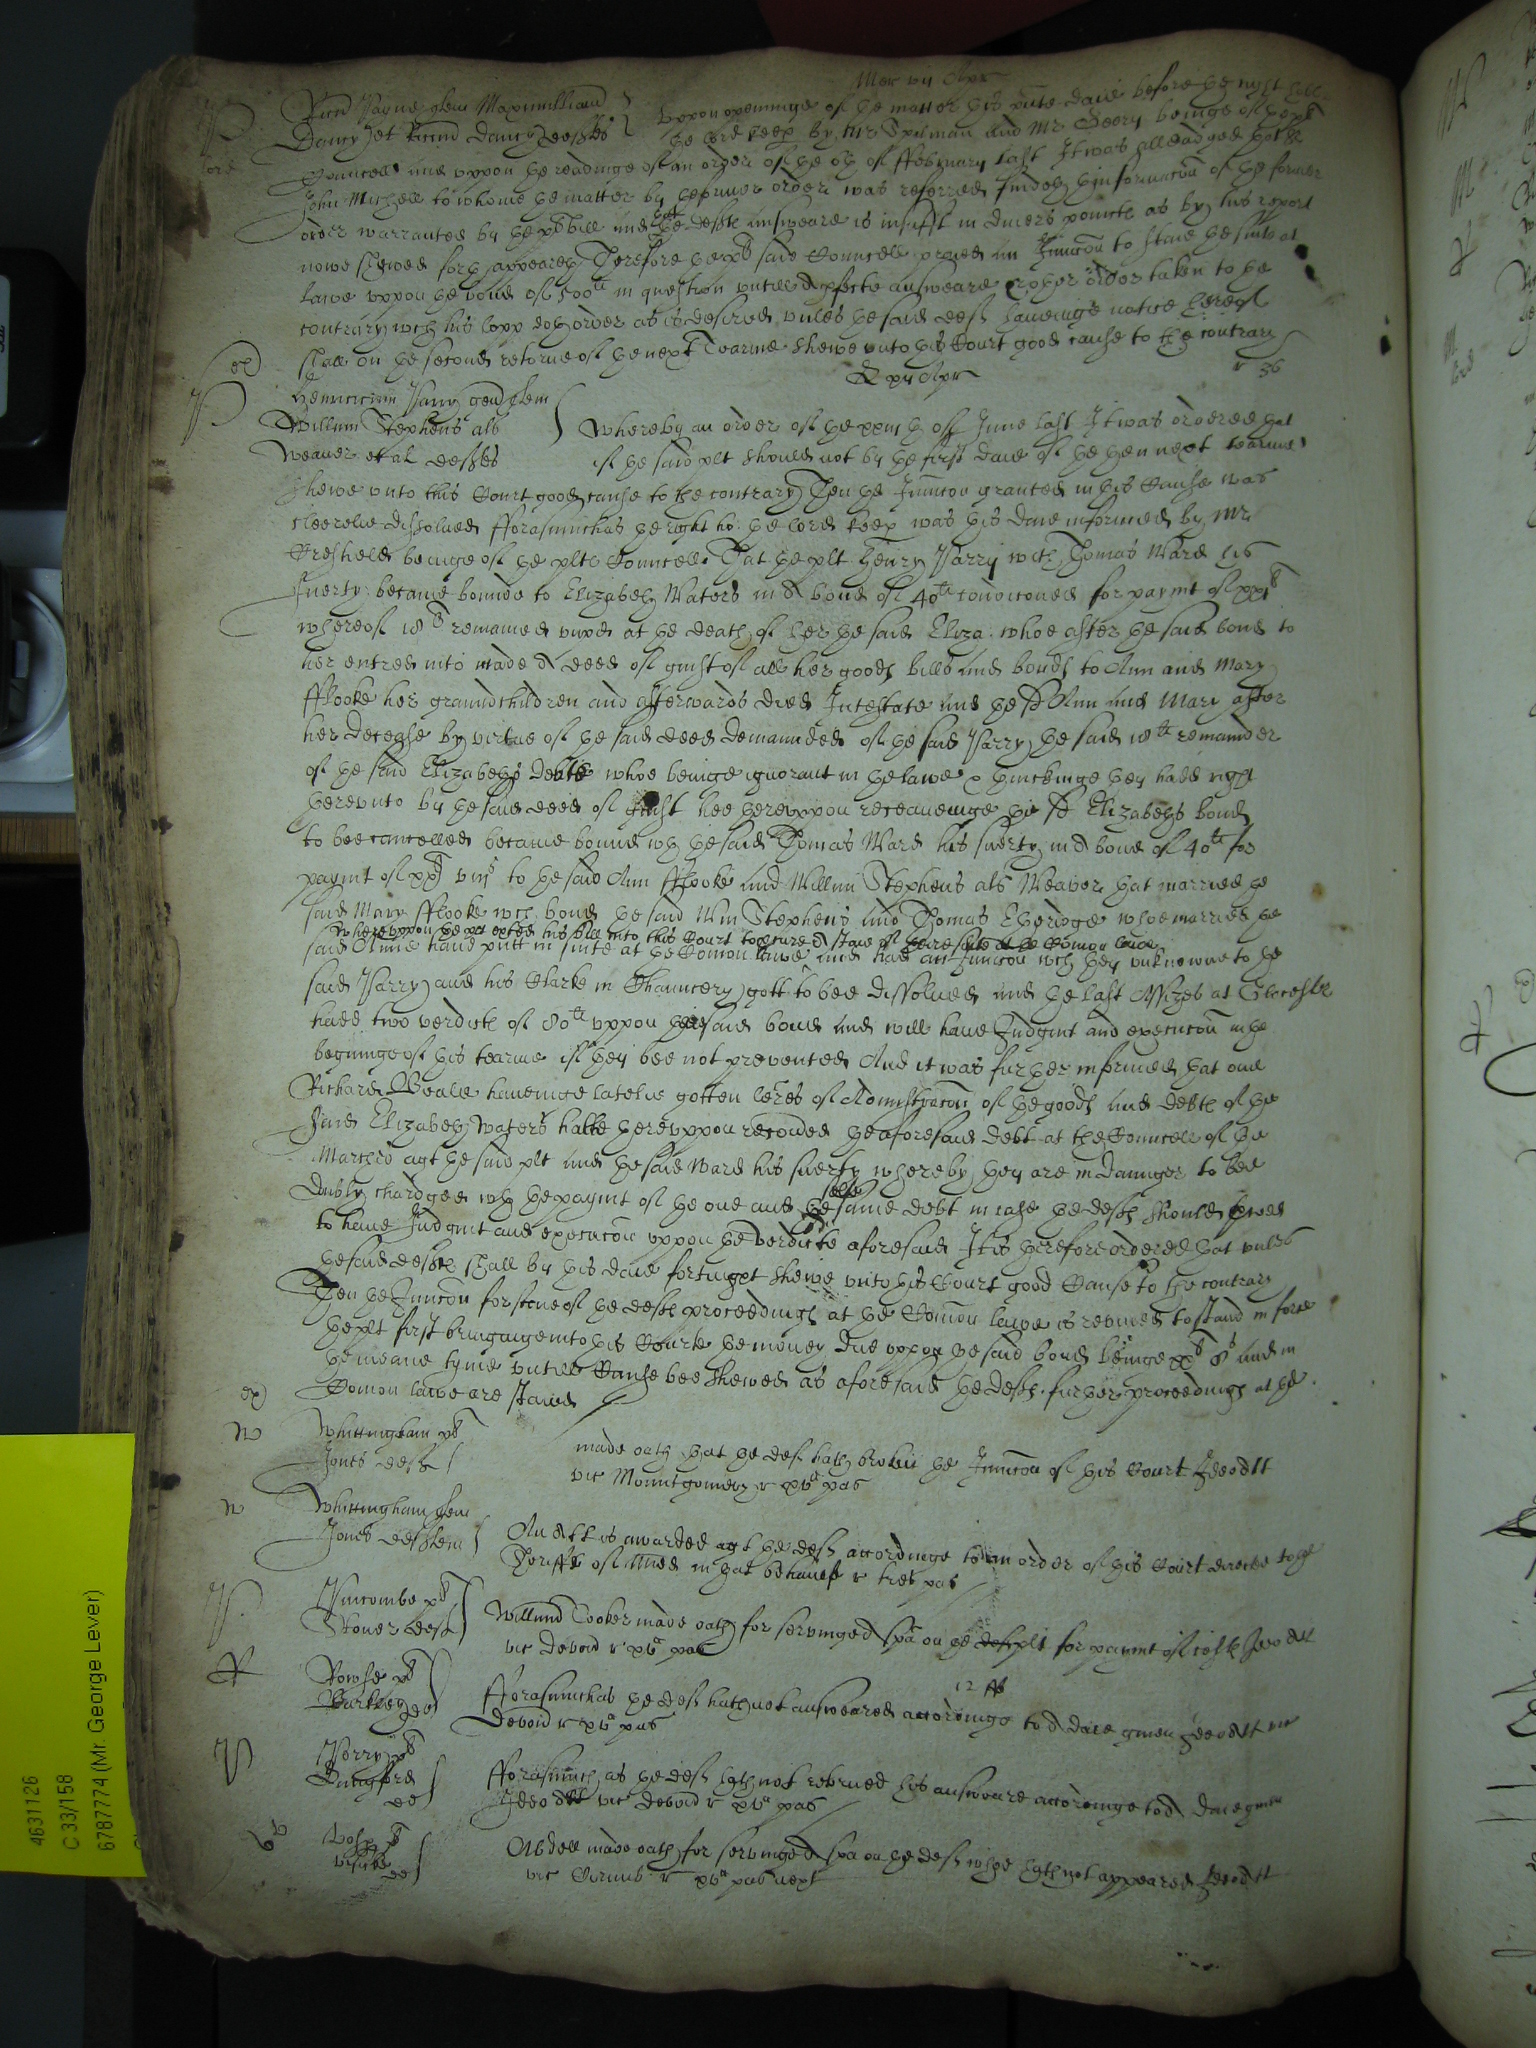 Mer vii Apr
Ricm Payne quer Maximilliam
Dancy et Ricm Dancy deftes
Uppon openinge of the matter this pnte daie before the right hoble
the lord keep by Mr Spelman and Mr George beinge of the plts
Councell and uppon the readinge of an order of the of of ffebruary last It was alleadged that Sr
John Michell to whome the matter by the former order was referred findeth thinformacon of the former
order warranted by the plts bill and that the defts answeare is insufft in divers points as by his report
nowe shewed forth appeareth Therefore the plts said Councell prayed an Iniuncon to staie the suite at
lawe uppon the bond of 500li in question untill a pfecte answeare or other order taken to the
contrary wch his lopp doth order as is desired unles the said deft haveinge notice hereof
shall on the second retorne of the next Tearme shewe unto this Court good cause to the contrary
r 36
ex
P
Henricum Parry gen quem
Willum Stephens als
Weaver et al defts
Whereby an order of the xxiiith of June last It was ordered that
if the said plt should not by the first daie of the then next tearme
shewe unto this Court good cause to the contrary Then the Iniuncon granted in this Cause was
cleerelie dissolved fforasmuchas the right ho: the lord keep was this daie informed by Mr
Cresheld beinge of the plts Councell That the plt Henry Parry with Thomas Ward his
suerty became bound to Elizabeth Waters in a bond of 40li condiconed for paymt of xxli
whereof 18li remained unpd at the death of her the said Eliza: whoe after the said bond to
her entred into made a deed of guift of all her goods bills and bonds to Ann and Mary
fflooke her grandchildren and afterwards died Intestate and the sd Ann and Mary after
her decease by virtue of the said deed demaunded of the said Parry the said 18li remainder
of the said Elizabeths debte whoe beinge ignorant in the lawe & thinckinge they hadd right
thereunto by the said deed of guift hee thereuppon receaveinge the sd Elizabeths bond
to bee cancelled became bound wth the said Thomas Ward his suerty in a bond of 40li for
paymt of xxli viijs to the said Ann fflooke and Willm Stephens als Weaver that married the
said Mary fflooke wch bond the said Wm Stephens and Thomas Etheridge whoe married the
whereuppon the plt exhited his bill into this Court to staie of there suite at the Comon lawe
said Anne have putt in suite at the Comon lawe and had an Iniuncon wch they unknowne to the
said Parry and his Clarke in Chauncery gott to bee dissolved and the last Assizes at Glocester
hadd two verdicts of 80li uppon the said bond and will have Iudgmt and execucon in the
begininge of this tearme if they bee not prevented And it was further informed that one
Richard Beale haveinge latelie gotten lres of Administracon of the goods and debts of the
said Elizabeth Waters hathe thereuppon recoued the aforesaid debt at the Councell of the
Marches agt the said plt and the said Ward his suerty whereby they are in daunger to bee
dubly chardged wth the paymt of the one and the selfe same debt in case the defts should
to have Iudgmt and execucon uppon the verdicte aforesaid It is therefore ordered that unles
the said defts shall by this daie fortnight shewe unto this Court good Cause to the contrary
Then the Iniuncon for staie of the defts proceedings at the Comon lawe is revived to stand in force
the plt first bringinge into this Courte the money due uppon the said bond beinge xxli 8s and in
the meane tyme untill Cause bee shewed as aforesaid the defts further proceedings at the
Comon lawe are staied
ex
W
Whittingham plt
Jones deft
made oath that the deft hath broken the Iniuncon of this Court Ideo att
vic Mountgomery r xva pas
W
Whittingham quem
Jones deftem
An Att is awarded agt the deft accordinge to an order of this Court directe to the
Sheriffe of in that behaulf r tres pas
P
Pincombe plt
Stover deft
Willm Tooker made oath for servinge a spa on the plt for paymt of costs Ideo att
vic Devoñ r xva pas
R
Rowse plt
Barkley de
12 ff
fforasmuchas the deft hath not answeared accordinge to a daie given Ideo att vic
Devoñ r xva pas
P
Perry plt
de
fforasmuch as the deft hath not retorned his answeare accordinge to a daie given
Ideo att vic Devoñ r xva pas
plt
de
made oath for servinge a spa on the deft whoe hath not appeared Ideo att
vic Cornub r xva pas next
4631126
C 33/158
67877774 (Mr. George Lever)